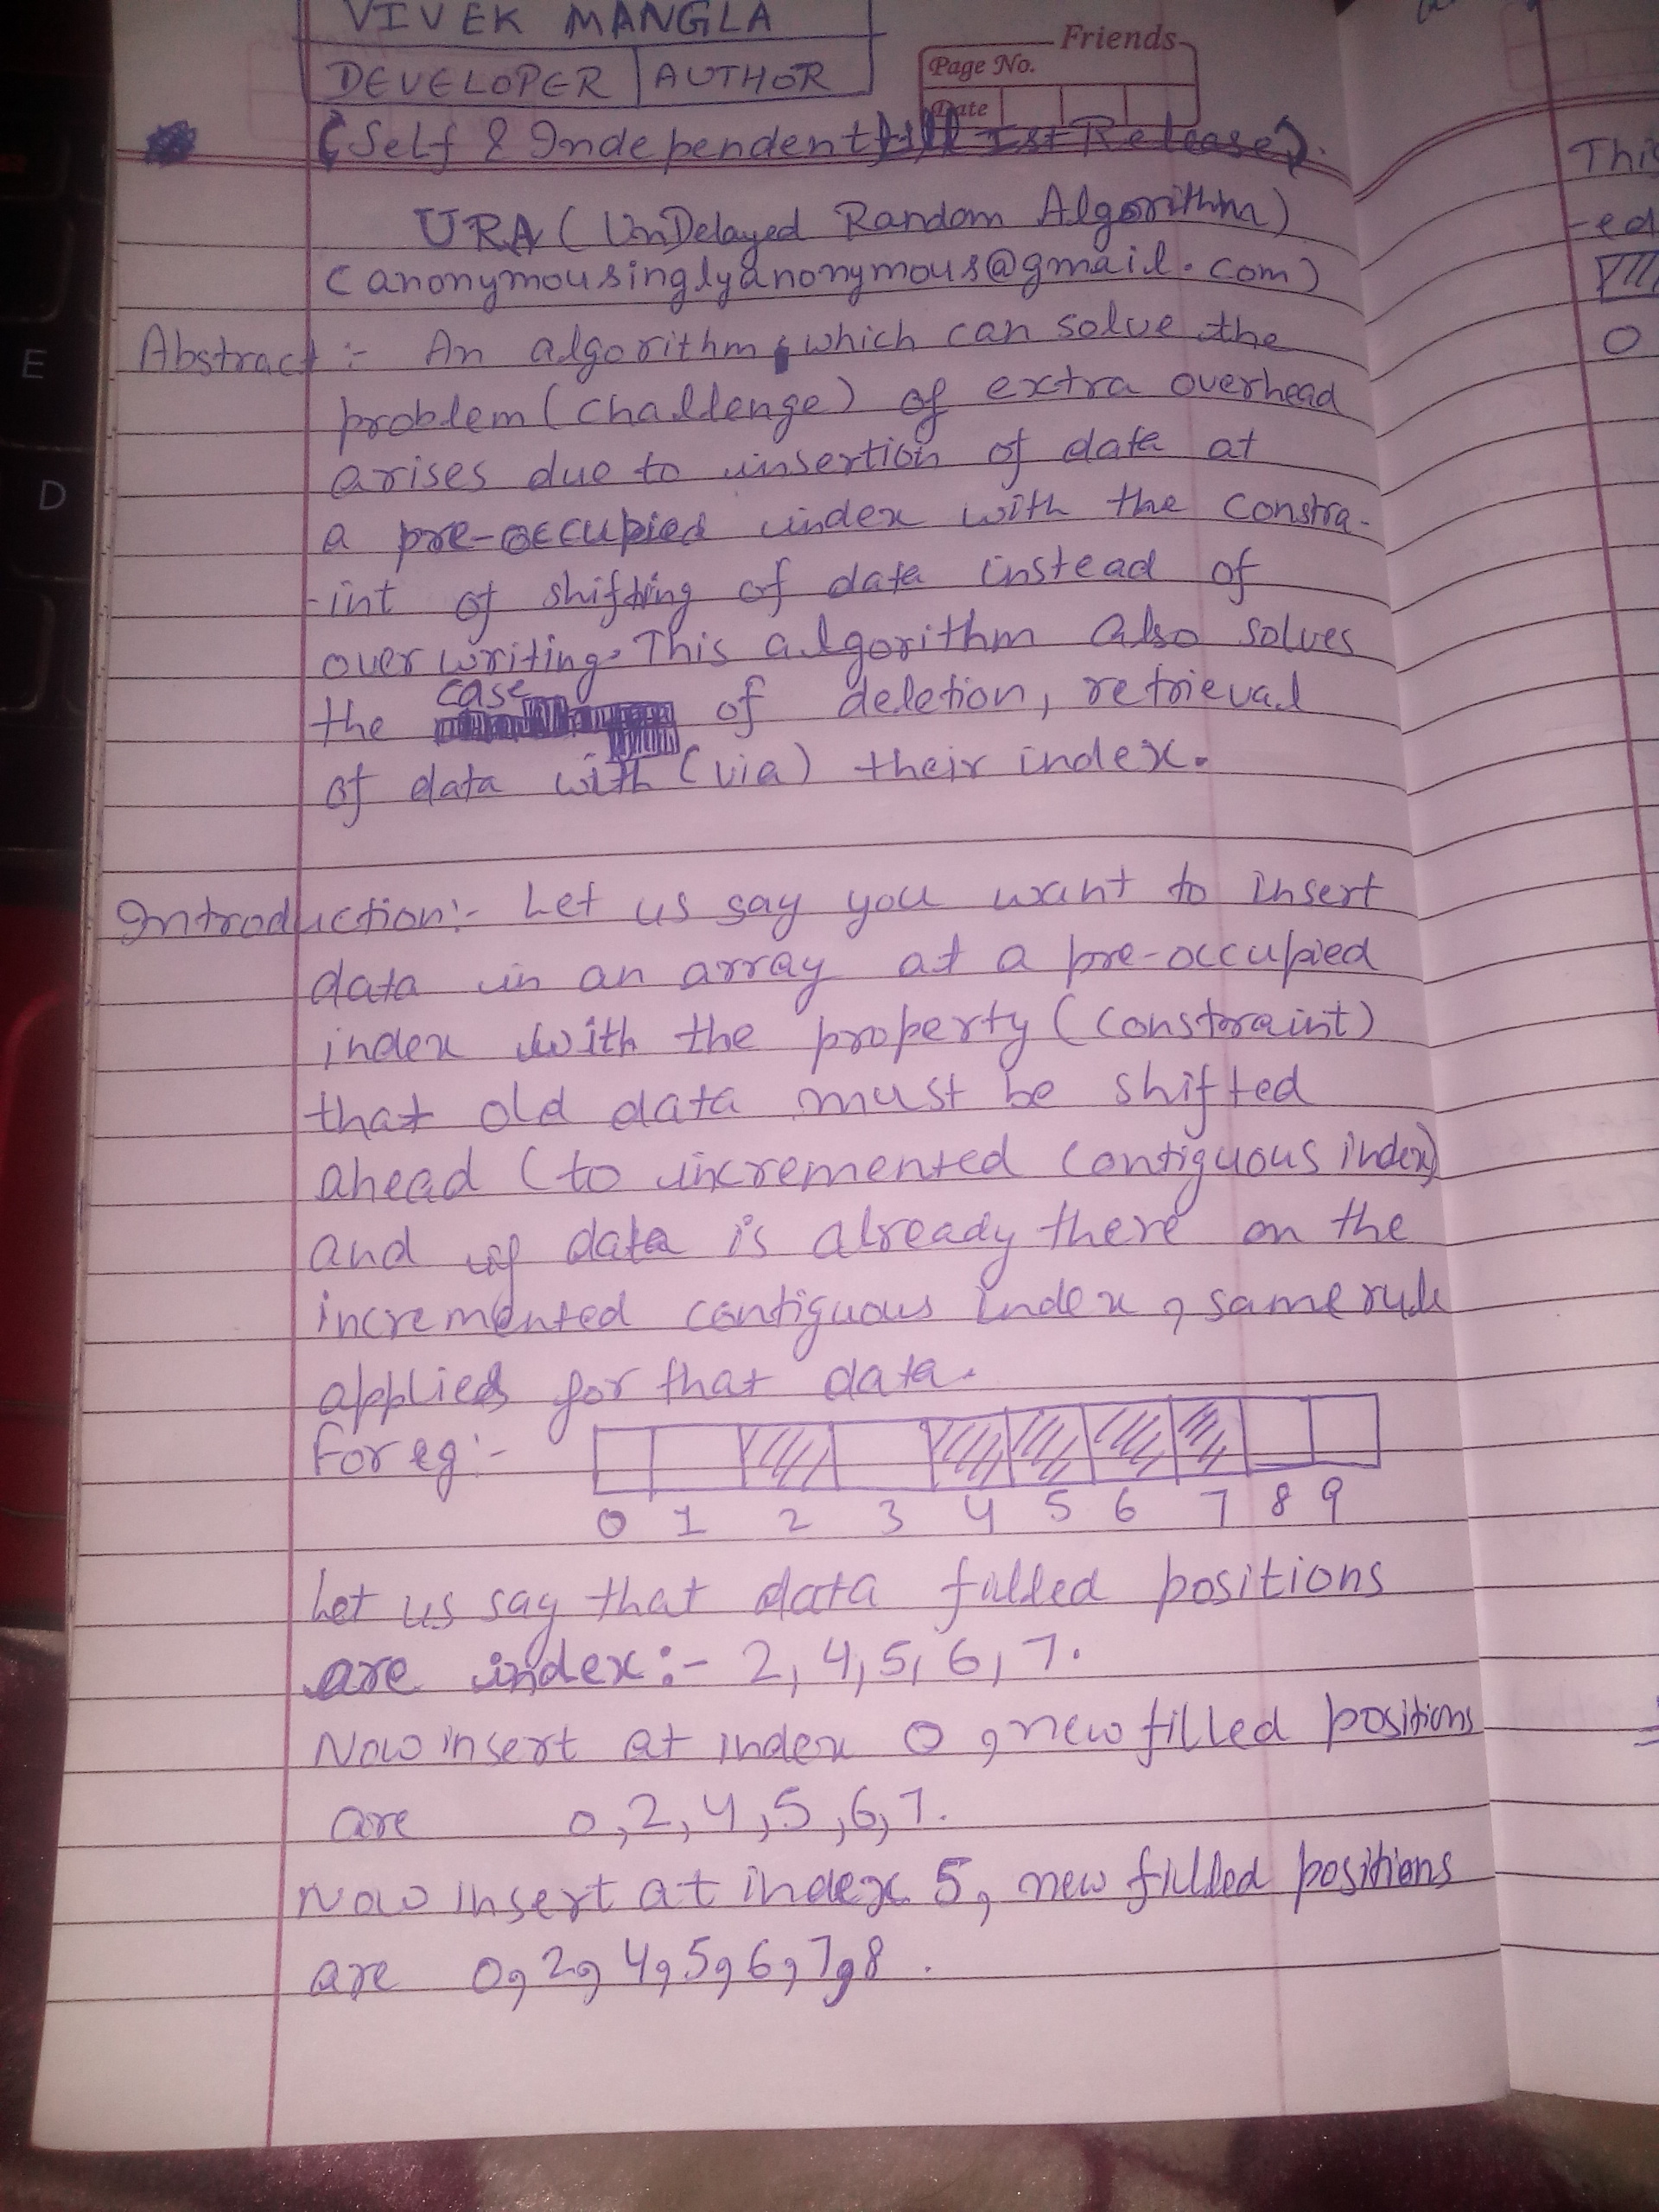 VIVEK MANGLA
DEVELOPER | AUTHOR
Friends
Page No.
Date
(Self & Independent till Ist Release).
URA (UnDelayed Random Algorithm)
(anonymousinglyanonymous@gmail.com)
Abstract :- An algorithm, which can solve the
problem (challenge) of extra overhead
arises due to insertion of data at
a pre-occupied index with the constra-
-int of shifting of data instead of
over writing. This algorithm also solves
the case of deletion, retrieval
of data with (via) their index.
Introduction:- Let us say you want to insert
data in an array at a pre-occupied
index with the property (constraint)
that old data must be shifted
ahead (to incremented contiguous index)
and if data is already there on the
incremented contiguous index, same rule
applied for that data.
For eg:-
0 1 2 3 4 5 6 7 8 9
Let us say that data filled positions
are index:- 2, 4, 5, 6, 7.
Now insert at index 0, new filled positions
are 0, 2, 4, 5, 6, 7.
Now insert at index 5, new filled positions
are 0, 2, 4, 5, 6, 7, 8.
This
-ed
0
E
D